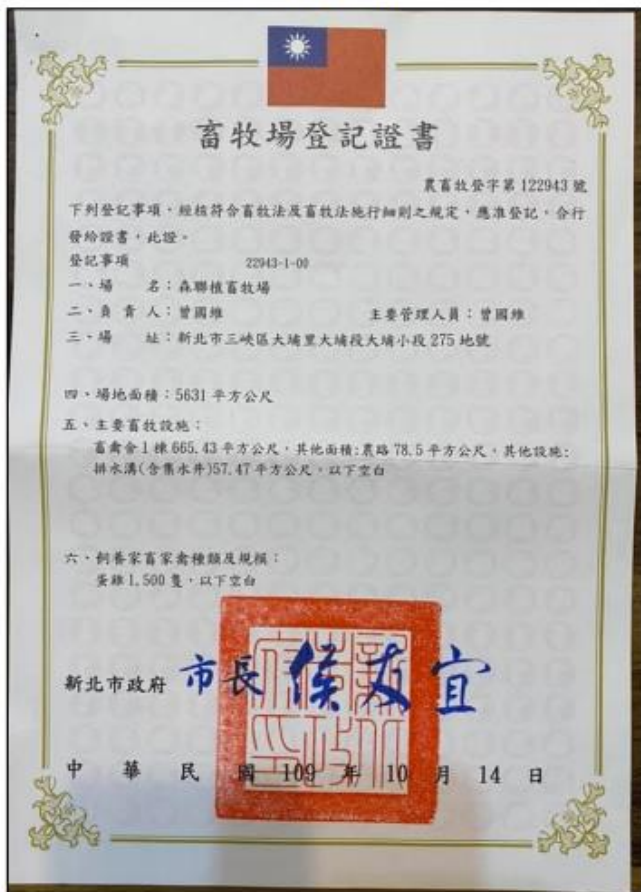 畜牧場登記證書
農畜牧登字第 122943 號
下列登記事項，經核符合畜牧法及畜牧法施行細則之規定，應准登記，合行
發給證書，此證。
登記事項 22943-1-00
一、場 名：森聯植畜牧場
二、負 責 人：曾國維 主要管理人員：曾國維
三、場 址：新北市三峽區大埔里大埔段大埔小段 275 地號
四、場地面積：5631 平方公尺
五、主要畜牧設施：
畜禽舍 1 棟 665.43 平方公尺，其他面積:農路 78.5 平方公尺，其他設施:
排水溝(含集水井)57.47 平方公尺，以下空白
六、飼養家畜家禽種類及規模：
蛋雞 1,500 隻，以下空白
新北市政府 市長 侯友宜
新北市政府印
中 華 民 國 109 年 10 月 14 日